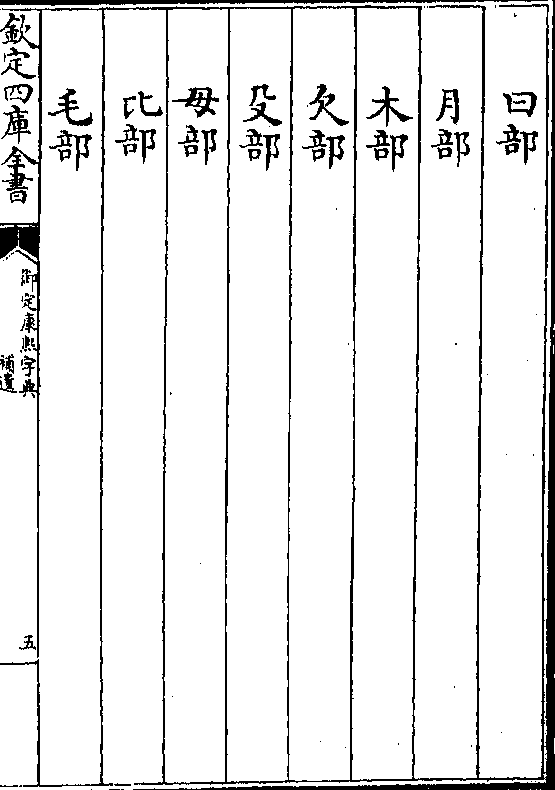 曰部
月部
木部
欠部
殳部
毋部
比部
毛部
欽定四庫全書
御定康熙字典
補遺
五